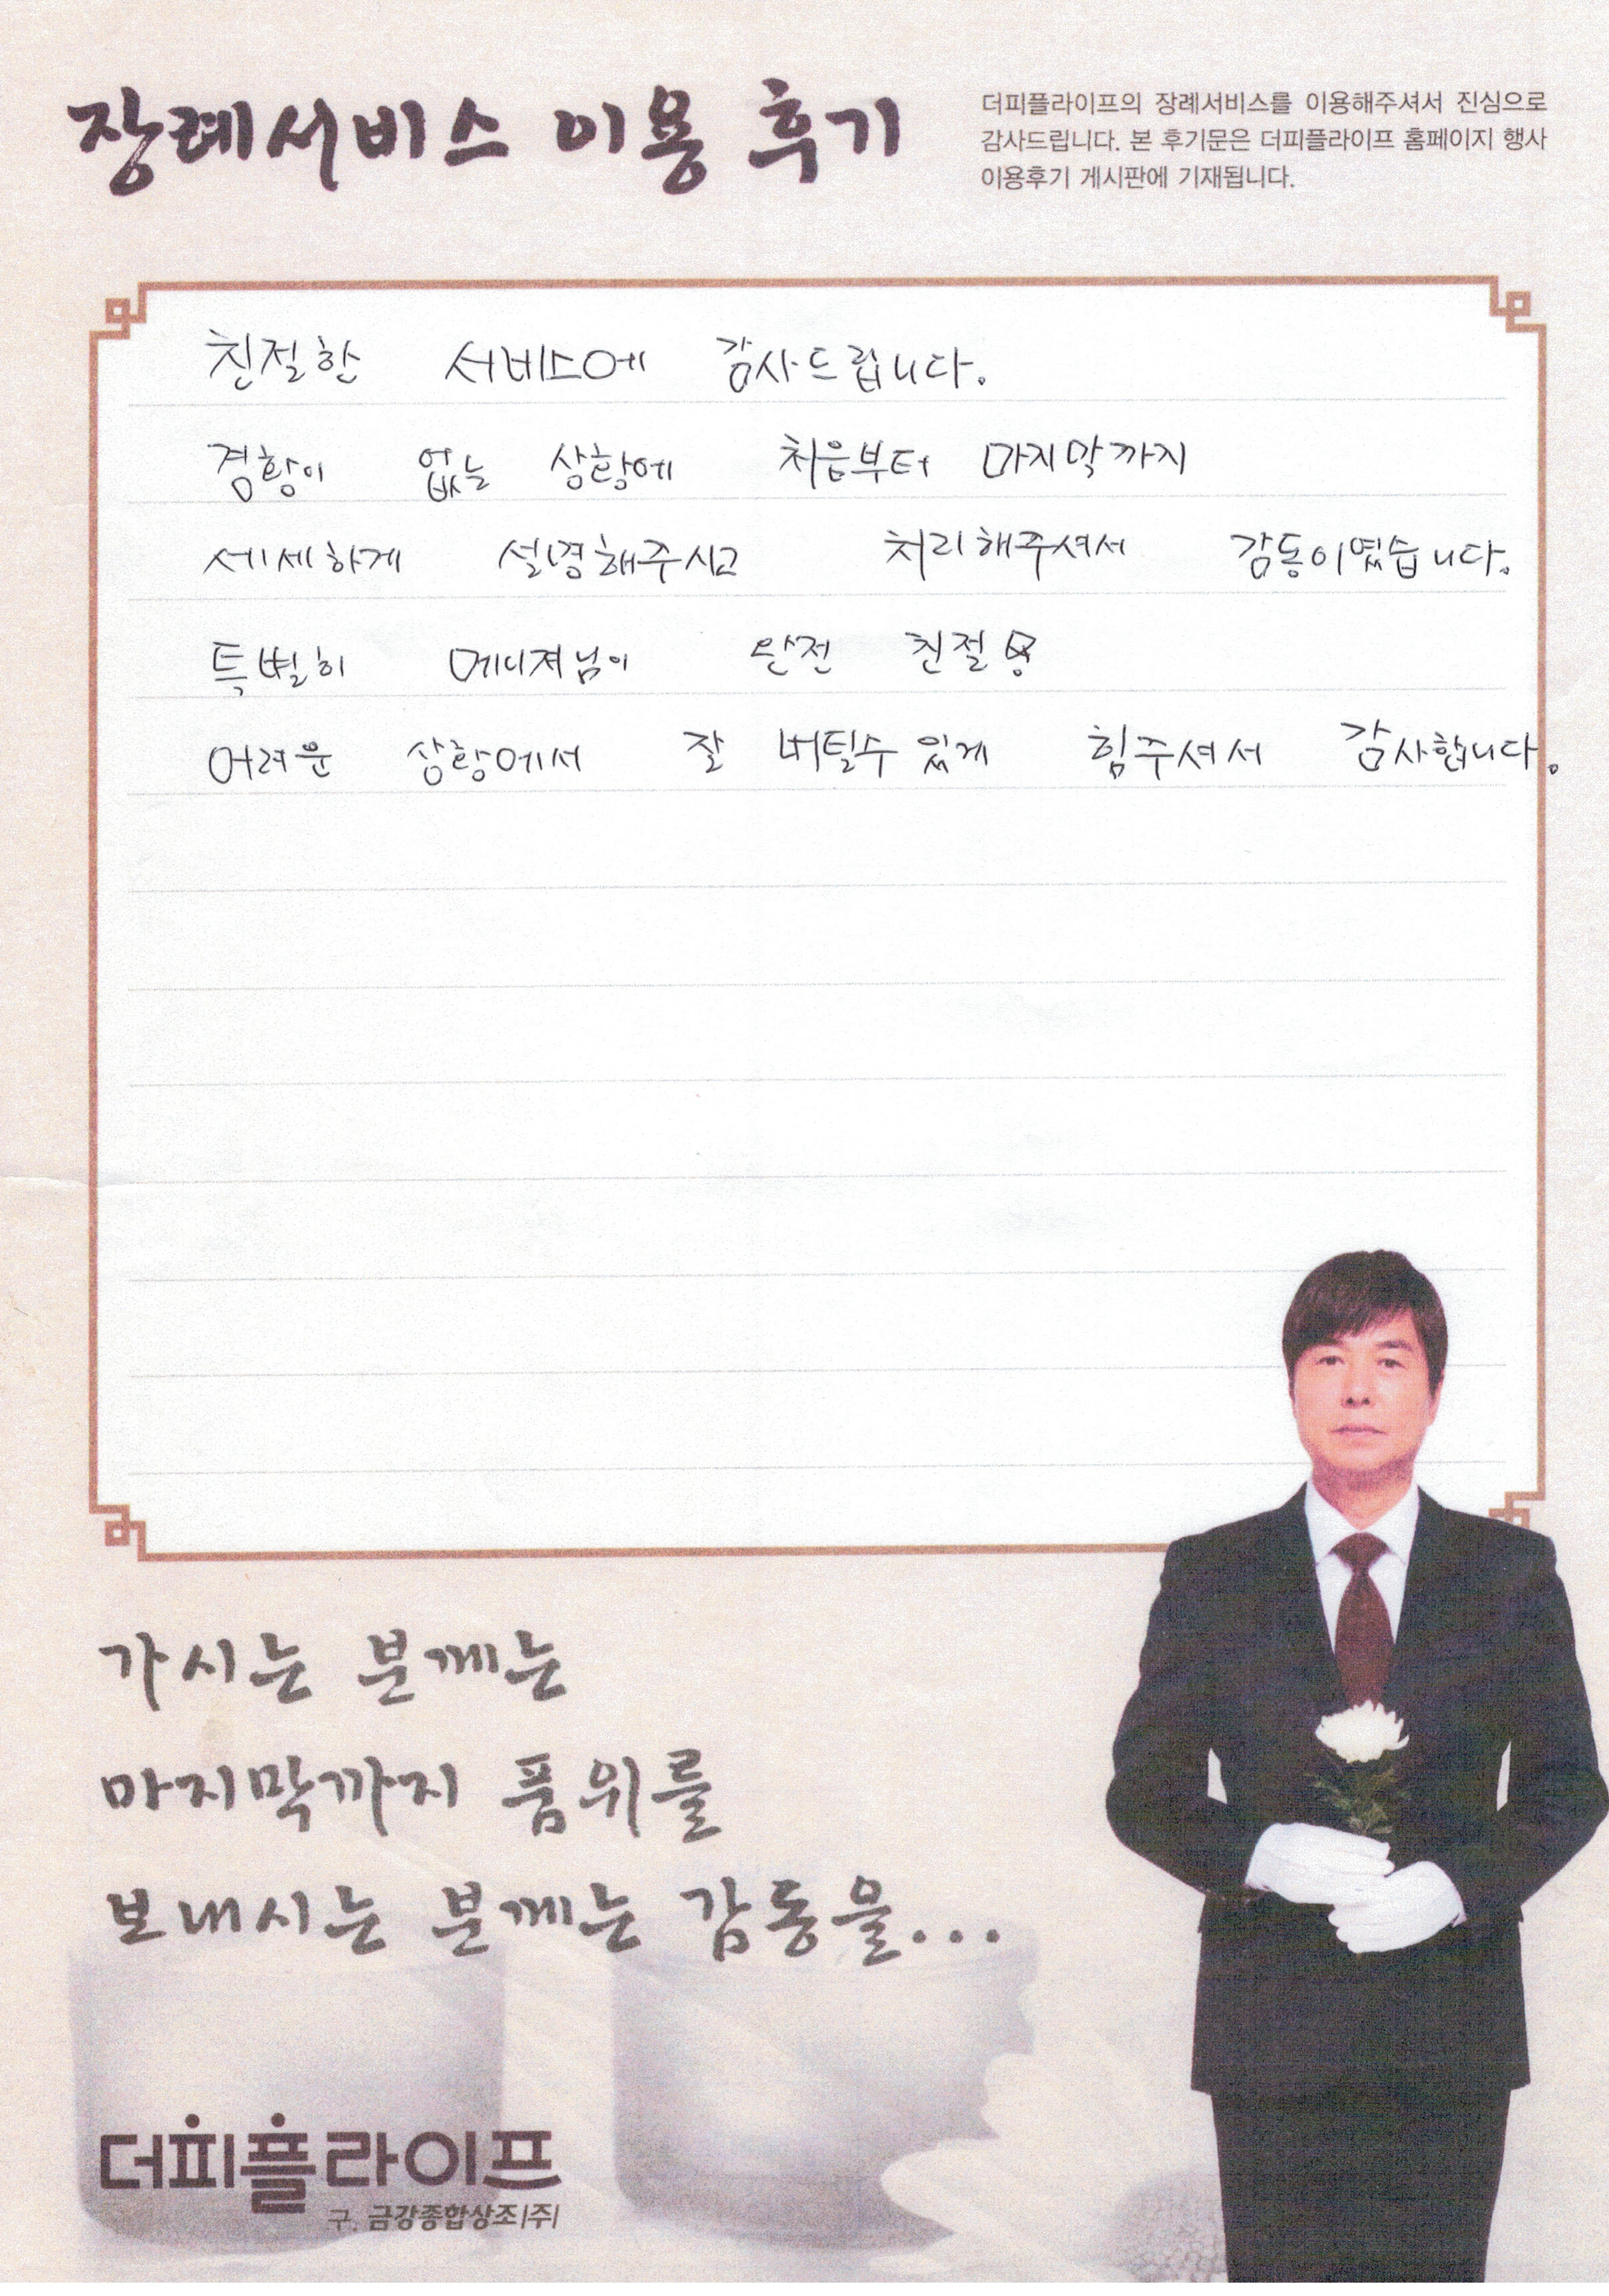 장례서비스 이용 후기
더피플라이프의 장례서비스를 이용해주셔서 진심으로
감사드립니다. 본 후기문은 더피플라이프 홈페이지 행사
이용후기 게시판에 기재됩니다.
친절한 서비스에 감사드립니다.
경황이 없는 상황에 처음부터 마지막까지
세세하게 설명해주시고 처리해주셔서 감동이였습니다.
특별히 메니져님이 완전 친절
어려운 상황에서 잘 버틸수 있게 힘주셔서 감사합니다.
가시는 분께는
마지막까지 품위를
보내시는 분께는 감동을...
더피플라이프
구. 금강종합상조(주)